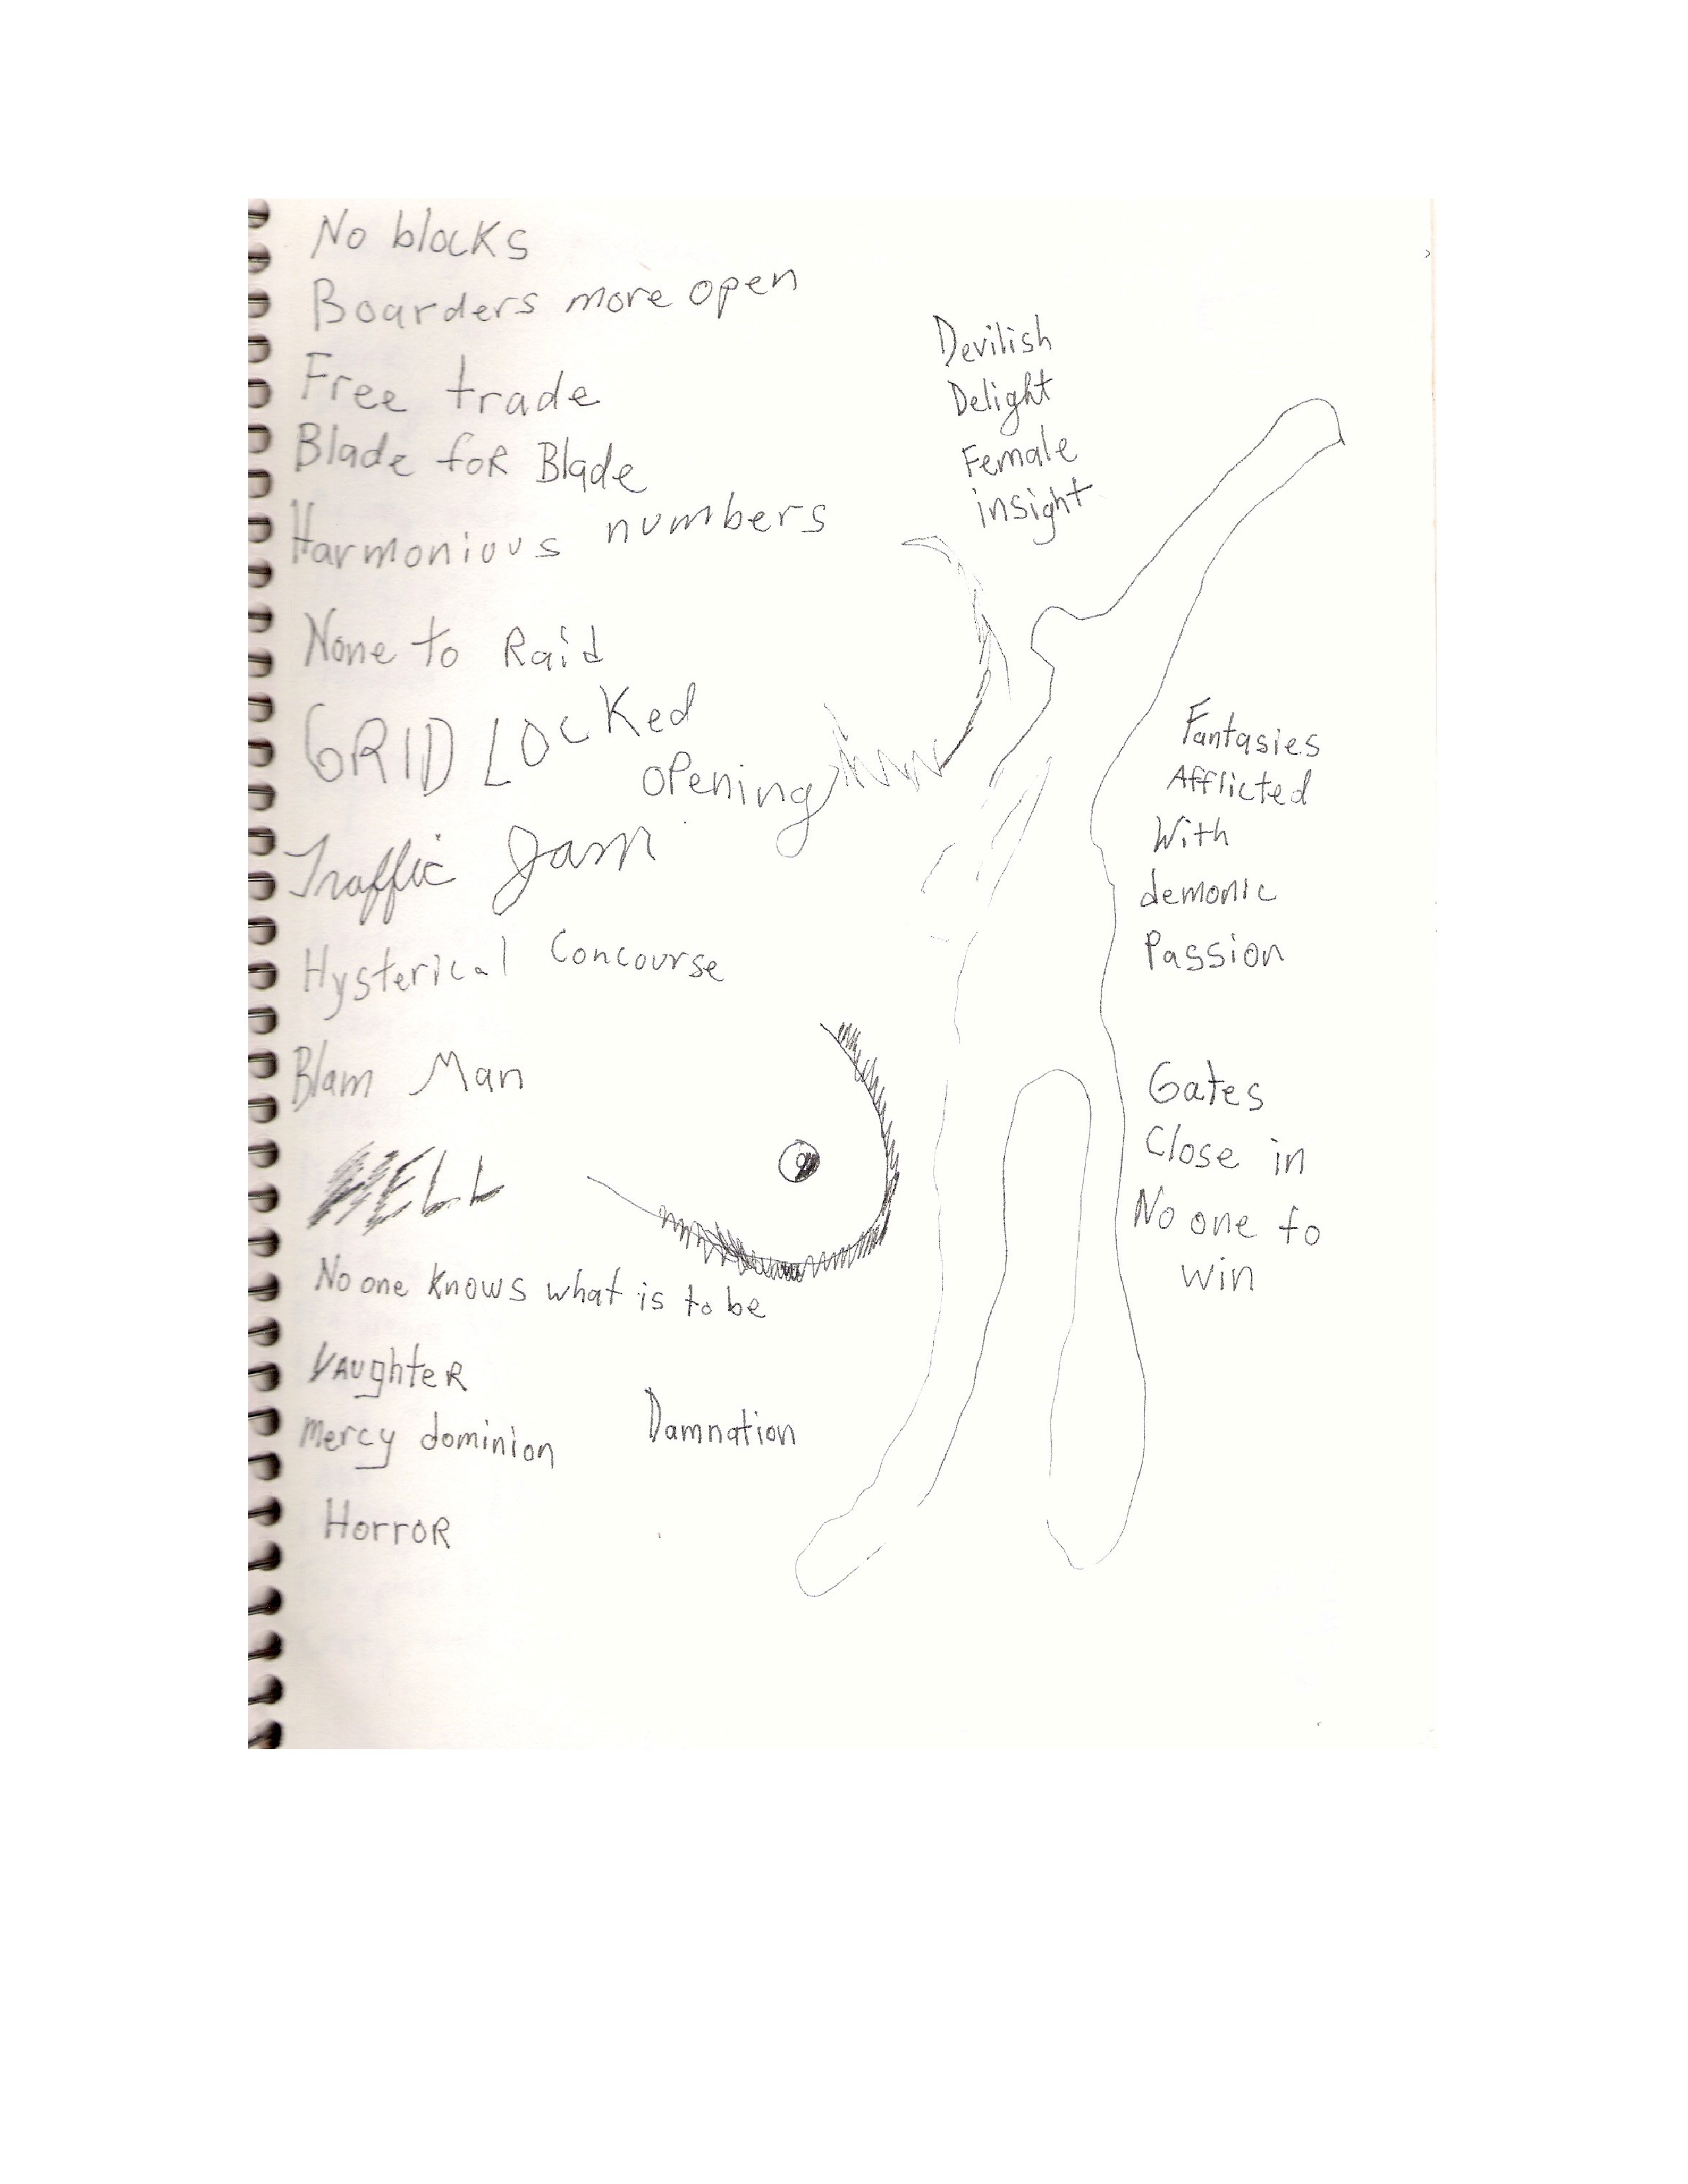 No blocks
Boarders more open
Free trade
Blade foR Blade
Harmonious numbers
None to Raid
GRID LOCKed
opening
Traffic Jam
Hysterical Concourse
Blam Man
HELL
No one knows what is to be
mercy dominion
Damnation
HorroR
Devilish
Delight
Female
insight
Fantasies
Afflicted
With
demonic
Passion
Gates
Close in
No one to
win